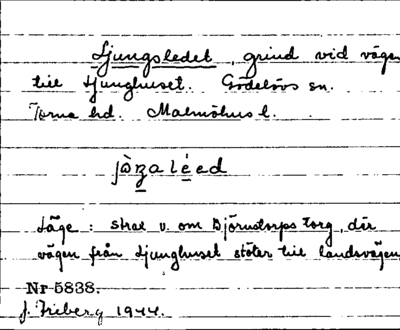 Ljungsledet, grind vid vägen
till Ljunghuset. Gödelövs sn.
Torna hd. Malmöhus l.
Läge: strax v. om Björnstorps torg, där
vägen från Ljunghuset stöter till landsvägen.
Nr 5838.
J. Friberg 1944.